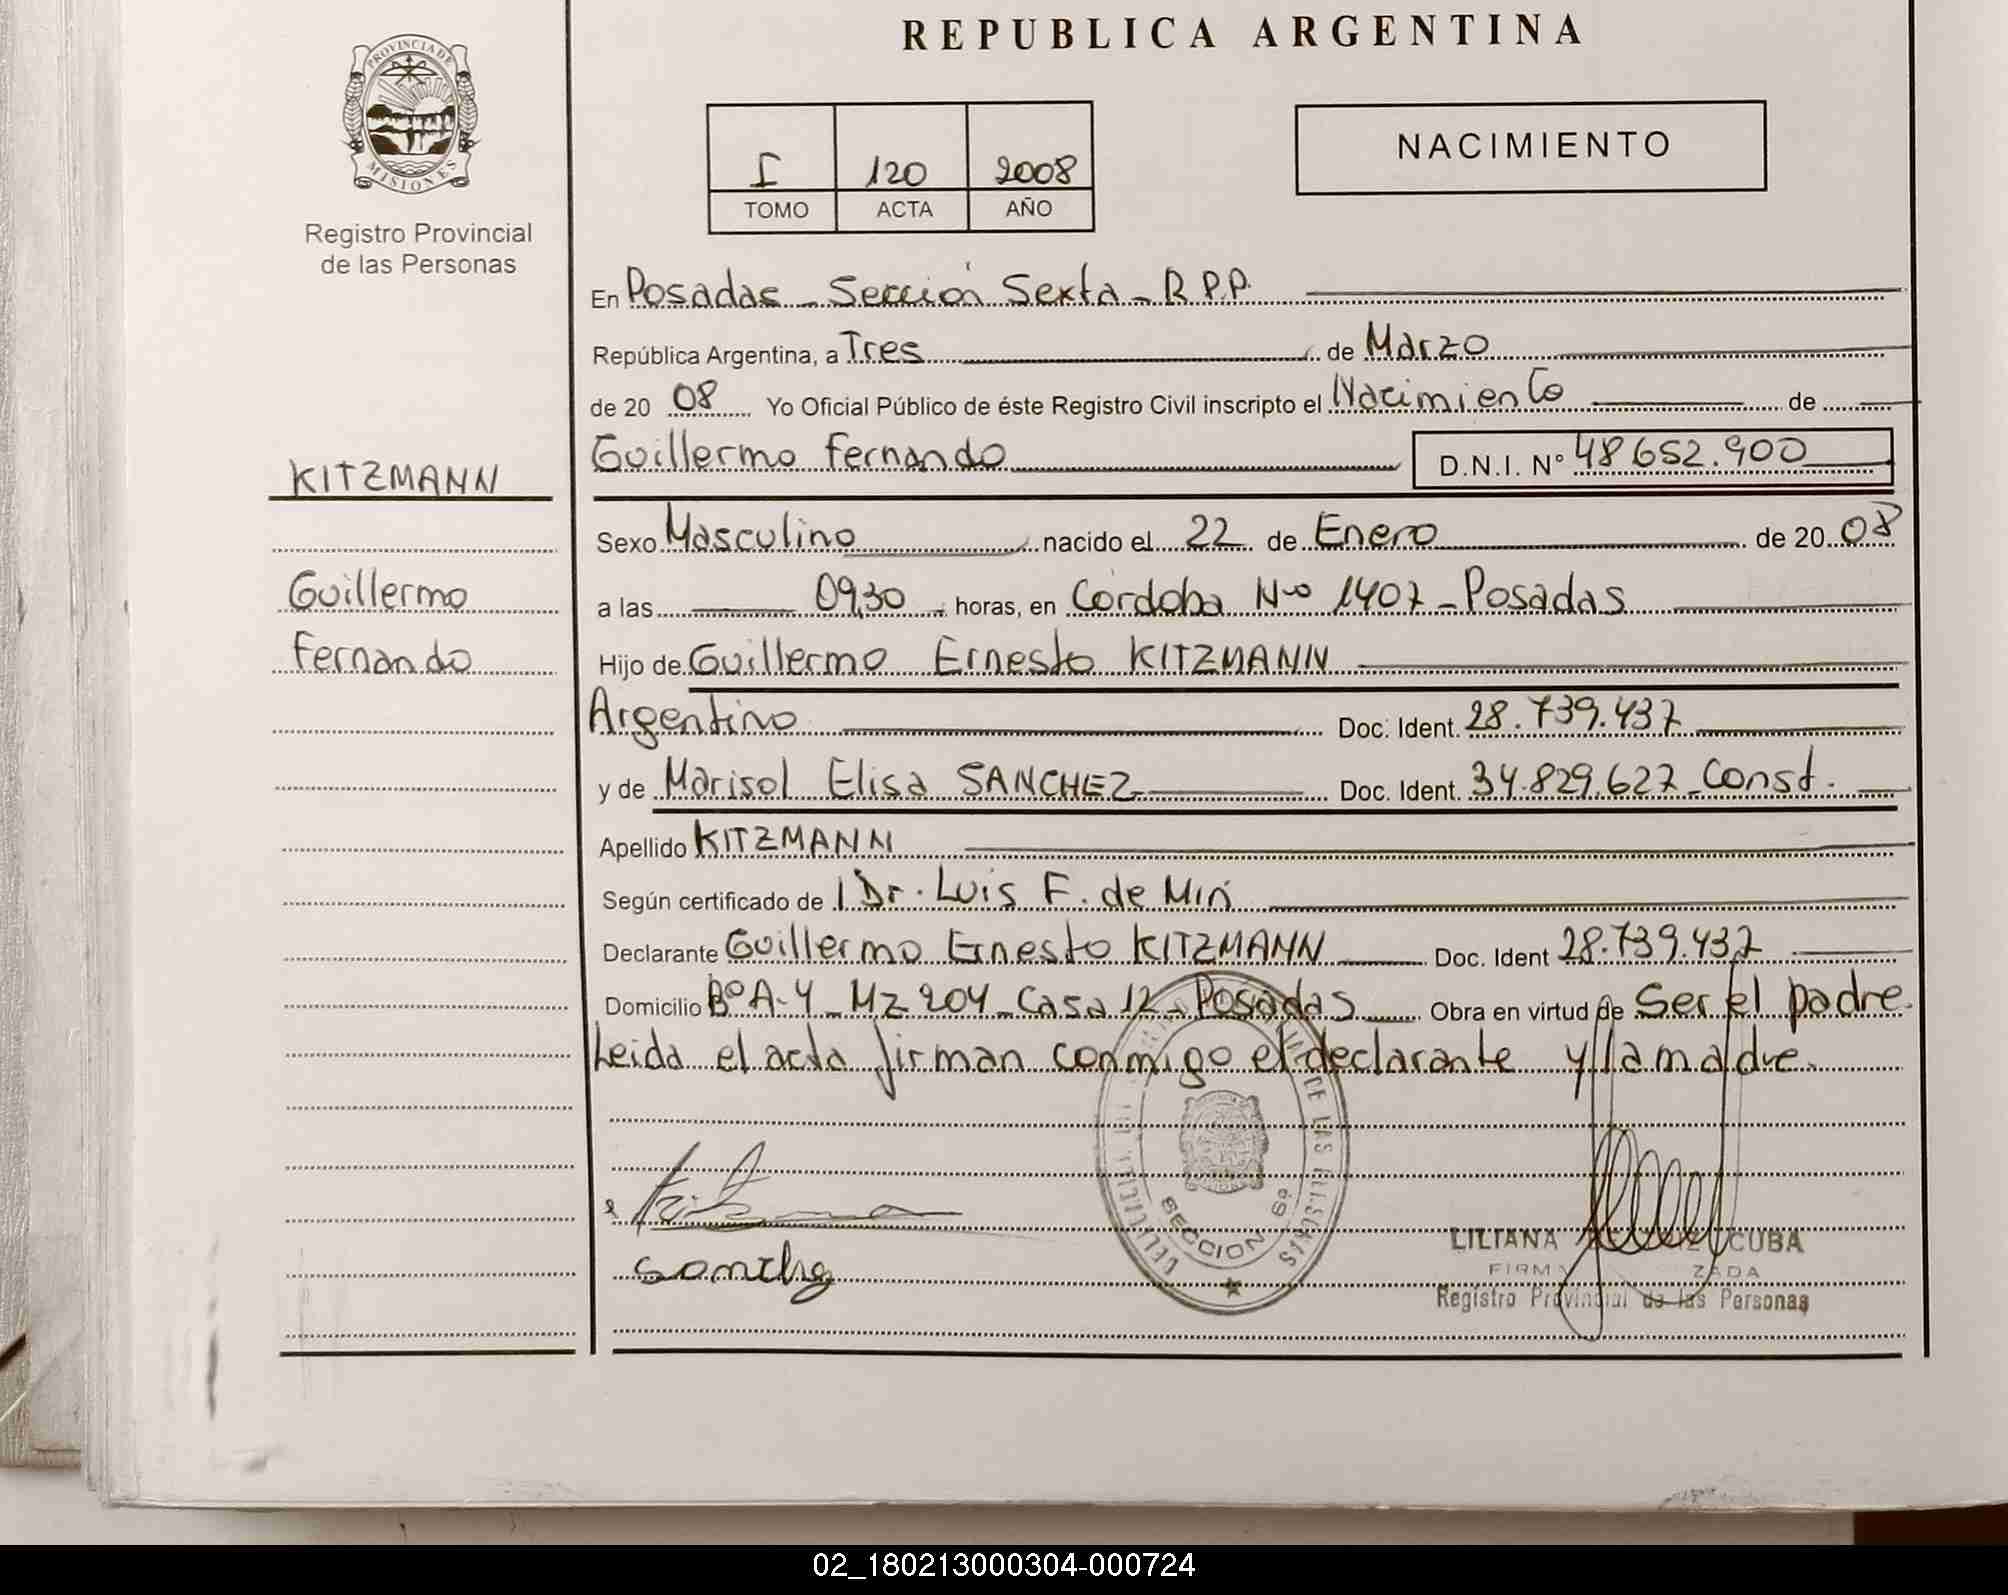 REPUBLICA ARGENTINA
PROVINCIA DE
MISIONES
Registro Provincial
de las Personas
I 120 2008
TOMO ACTA AÑO
NACIMIENTO
En Posadas - Sección Sexta - R.P.P.
República Argentina, a Tres de Marzo
de 20 08 Yo Oficial Público de éste Registro Civil inscripto el Nacimiento de
KITZMANN
Guillermo Fernando D.N.I. N° 48652.900
Sexo Masculino nacido el 22 de Enero de 20 08
Guillermo
a las 09,30 horas, en Córdoba Nro 1407 - Posadas
Fernando
Hijo de Guillermo Ernesto KITZMANN
Argentino Doc. Ident. 28.739.437
y de Marisol Elisa SANCHEZ Doc. Ident. 34.829.627 - Const.
Apellido KITZMANN
Según certificado de Dr. Luis F. de Miri
Declarante Guillermo Ernesto KITZMANN Doc. Ident 28.739.437
Domicilio B° A-4 - Mz 204 - Casa 12 - Posadas Obra en virtud de Ser el padre.
Leida el acta firman conmigo el declarante y la madre.
DE LAS
SECCION 6º
LILIANA CUBA
Registro Provincial de las Personas
02_180213000304-000724